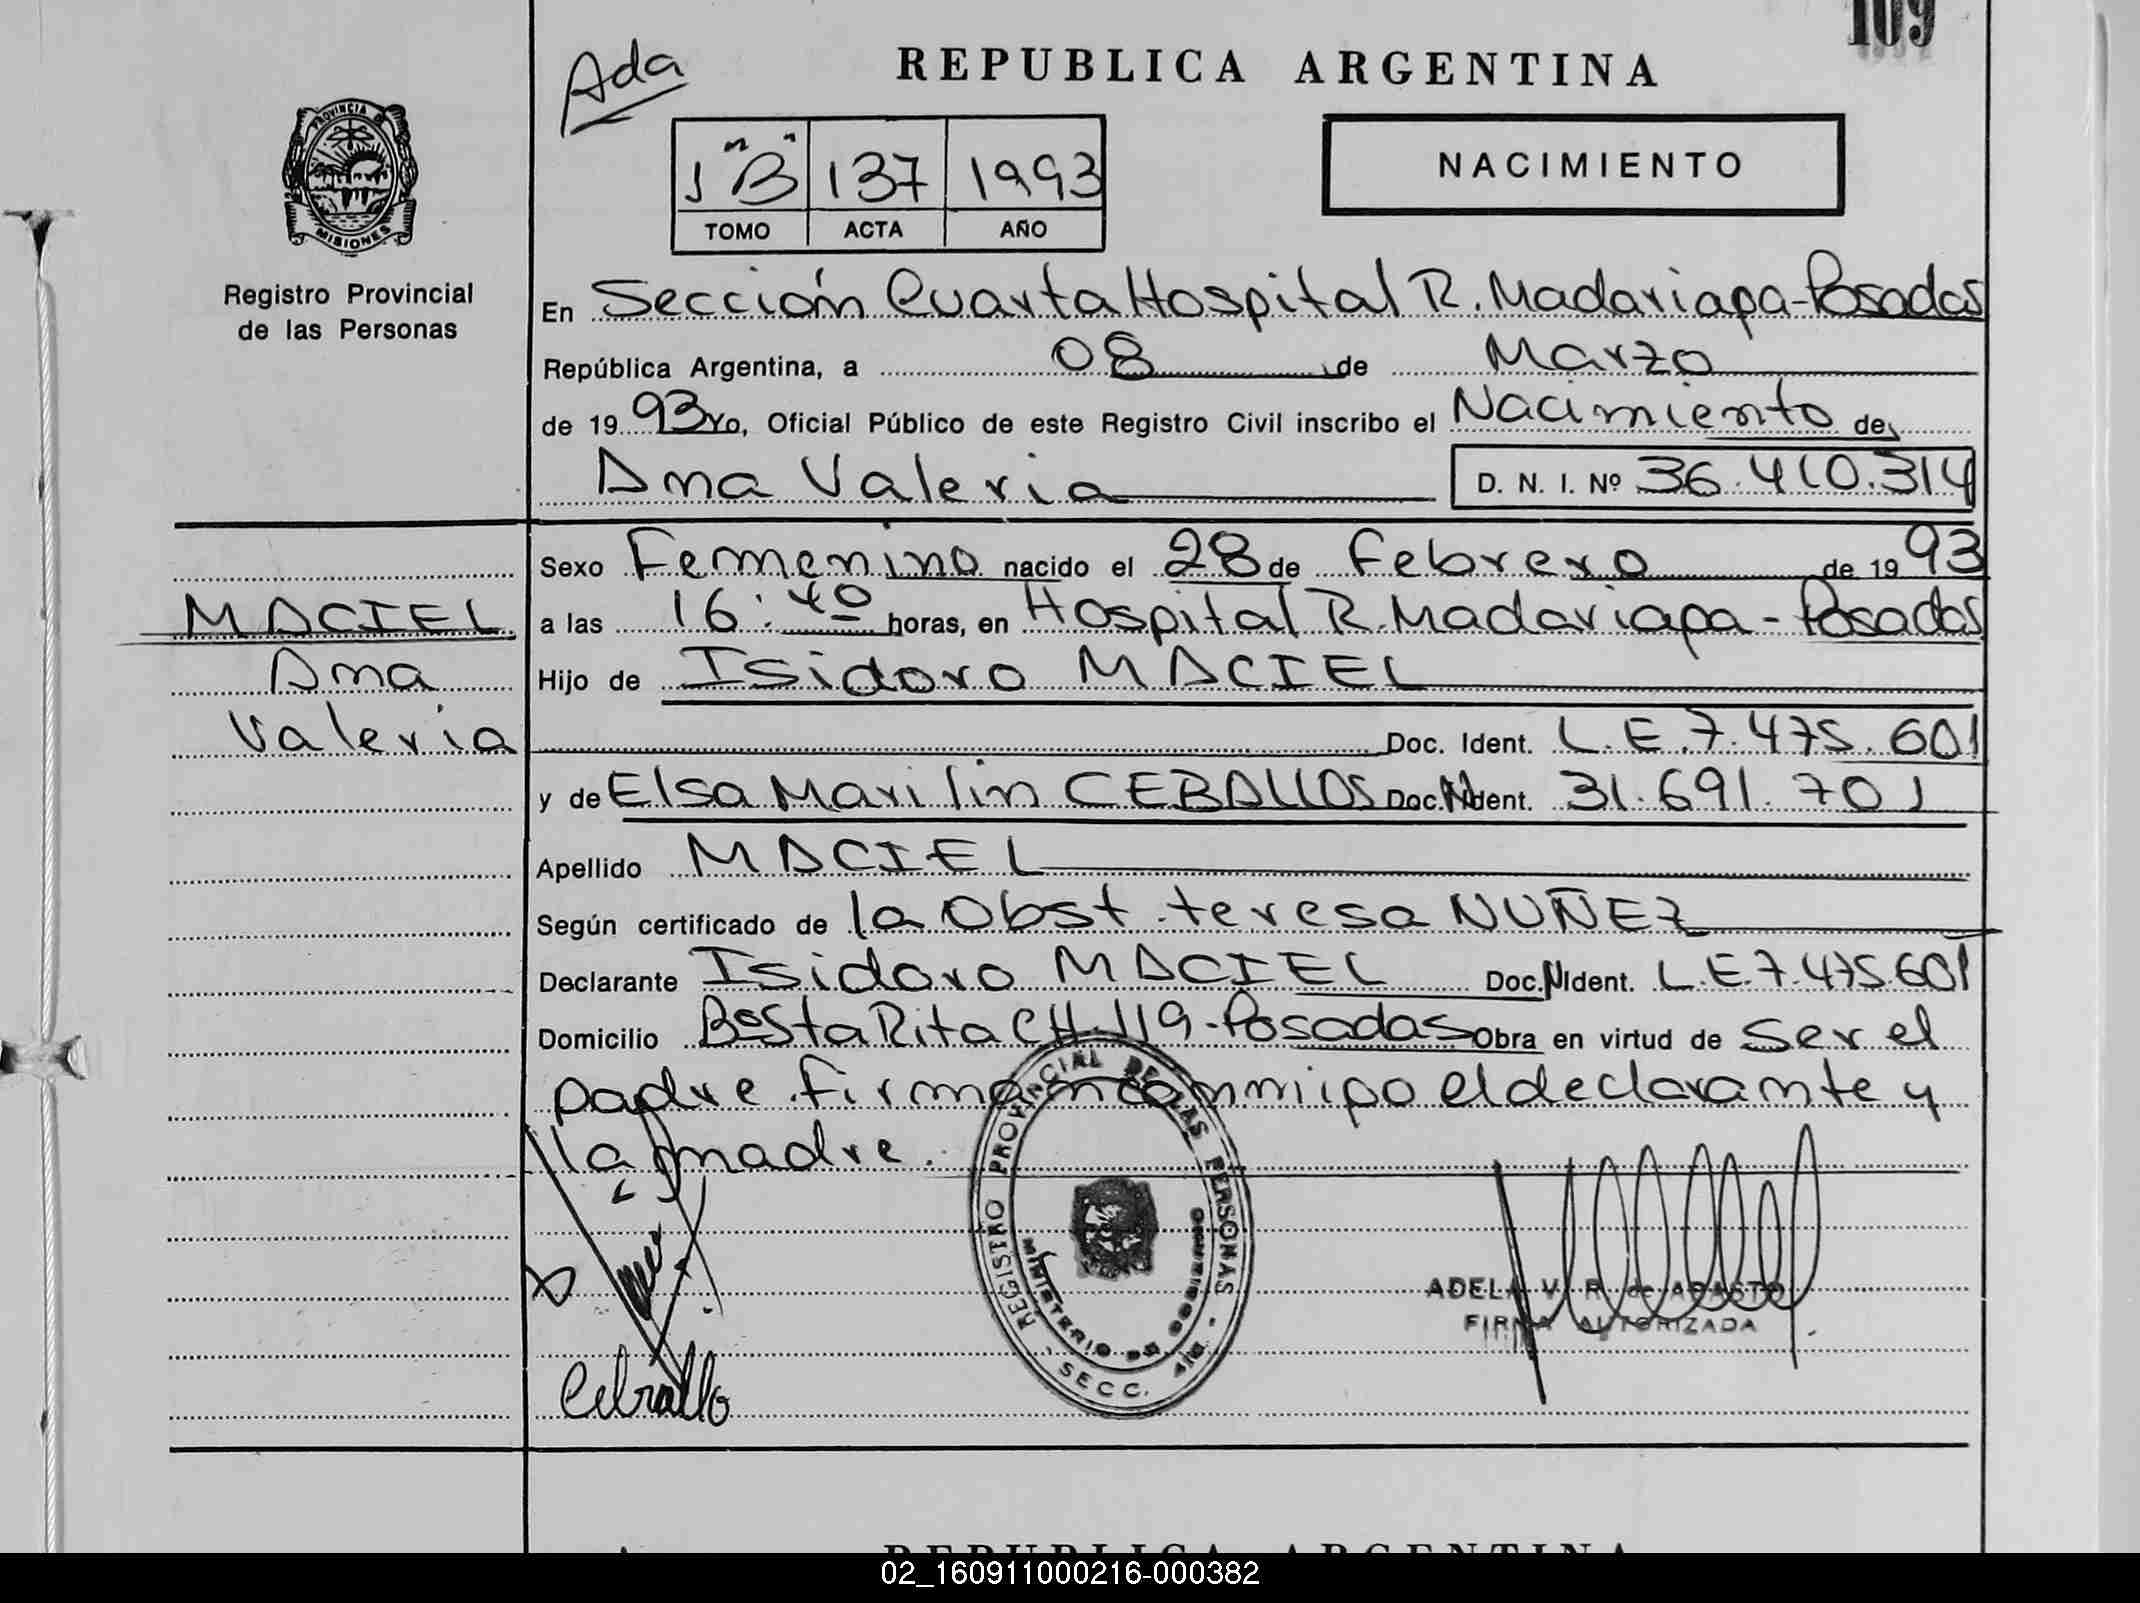 109
Ada
REPUBLICA ARGENTINA
PROVINCIA DE
MISIONES
Registro Provincial
de las Personas
1 "B" 137 1993
TOMO ACTA AÑO
NACIMIENTO
En Sección Cuarta Hospital R. Madariaga-Posadas
República Argentina, a 08 de Marzo
de 1993 Yo, Oficial Público de este Registro Civil inscribo el Nacimiento de
Ana Valeria D. N. I. Nº 36.410.314
Sexo Femenino nacido el 28 de Febrero de 1993
MACIEL a las 16:40 horas, en Hospital R. Madariaga - Posadas
Ana Hijo de Isidoro MACIEL
Valeria Doc. Ident. L.E.7.475.601
y de Elsa Marilin CEBALLOS Doc. Ident. 31.691.701
Apellido MACIEL
Según certificado de la Obst. teresa NUÑEZ
Declarante Isidoro MACIEL Doc. Ident. L.E.7.475.601
Domicilio Bº Sta Rita CH.119-Posadas Obra en virtud de ser el
padre. firman conmigo el declarante y
la madre.
REGISTRO PROVINCIAL DE LAS PERSONAS
MINISTERIO DE GOBIERNO
SECC. 4ta.
ADELA V. R. de ABASTO
FIRMA AUTORIZADA
Ceballo
REPUBLICA ARGENTINA
02_160911000216-000382